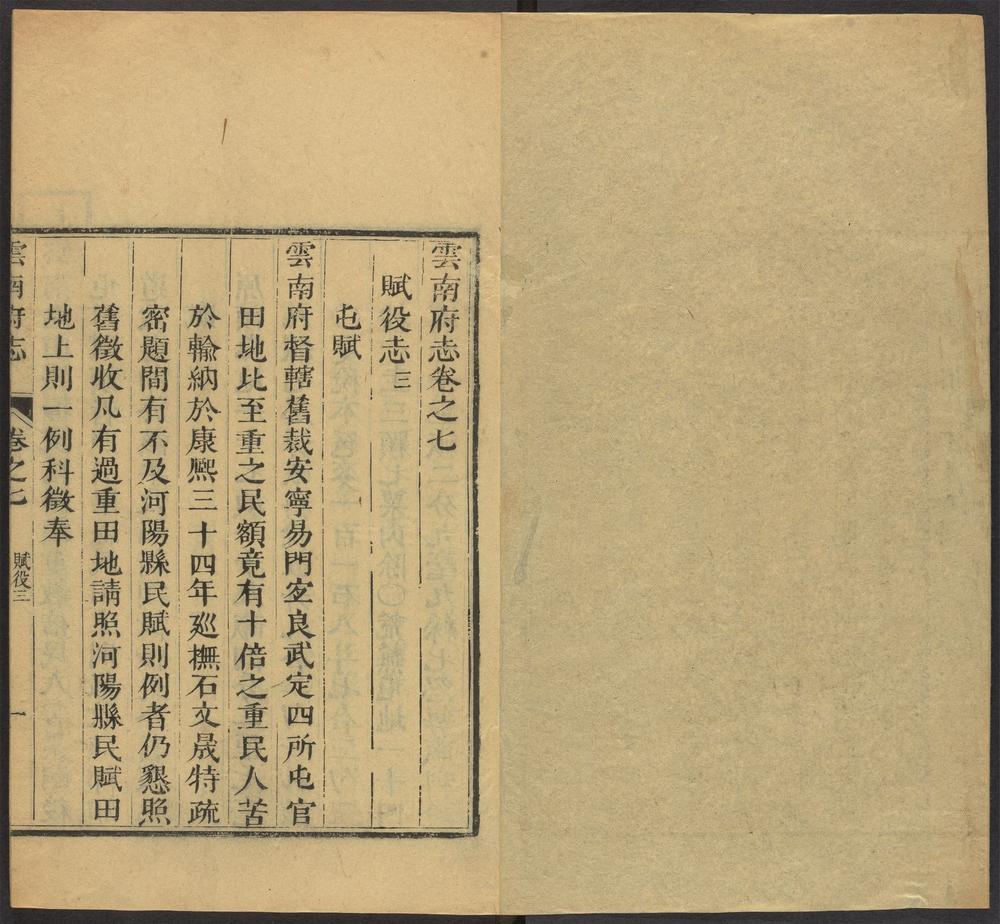 雲南府志卷之七
賦役志三
屯賦
雲南府督轄舊裁安寧易門宜良武定四所屯官
田地比至重之民額竟有十倍之重民人苦
於輸納於康熙三十四年廵撫石文晟特疏
密題間有不及河陽縣民賦則例者仍懇照
舊徵收凡有過重田地請照河陽縣民賦田
地上則一例科徵奉
雲南府志 卷之七 賦役三 一